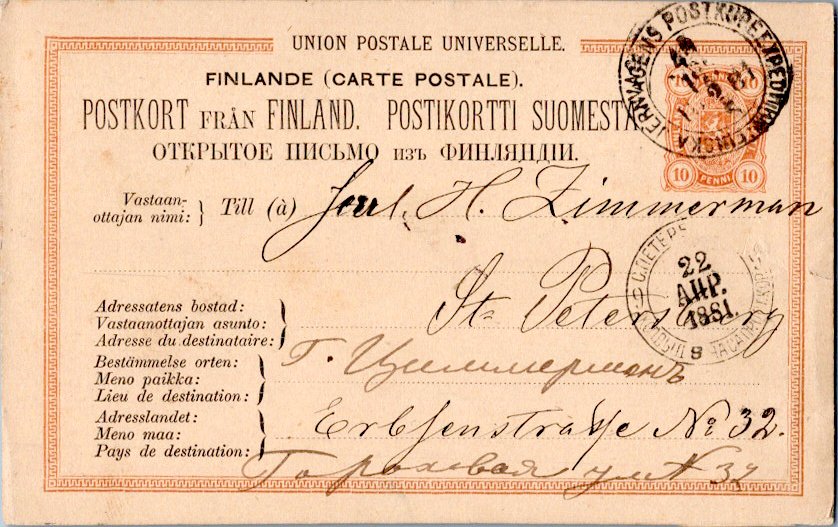 UNION POSTALE UNIVERSELLE.
FINLANDE (CARTE POSTALE).
POSTKORT FRÅN FINLAND. POSTIKORTTI SUOMESTA
ОТКРЫТОЕ ПИСЬМО изъ ФИНЛЯНДІИ.
10 10
10 PENNI 10
Vastaan-
ottajan nimi: } Till (à) H. Zimmerman
С.ПЕТЕРБ
22
АПР.
1881.
8
St Petersburg
Adressatens bostad:
Vastaanottajan asunto:
Adresse du destinataire:
Г. Циммерманъ
Bestämmelse orten:
Meno paikka:
Lieu de destination:
Erbsenstrasse No 32.
Adresslandet:
Meno maa:
Pays de destination:
Гороховая ул N 32